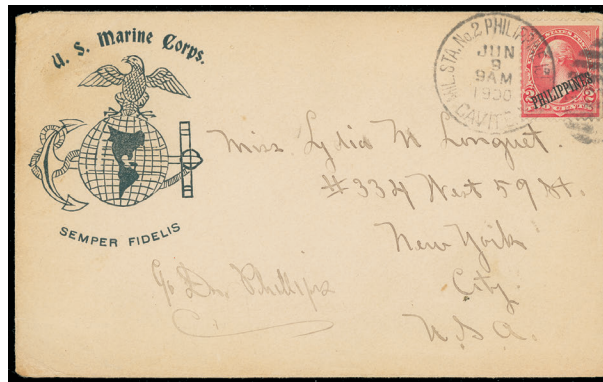 U. S. Marine Corps.
SEMPER FIDELIS
PHIL. STA. No. 2 PHILIPPINES
JUN
9AM
1900
CAVITE
PHILIPPINES
Miss Lydia M Longuet.
#334 West 59 St.
New York
City.
U.S.A.
c/o Dr. Phillips